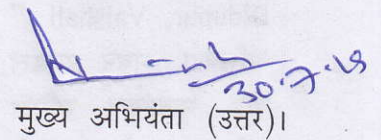 30.7.15
मुख्य अभियंता (उत्तर)।